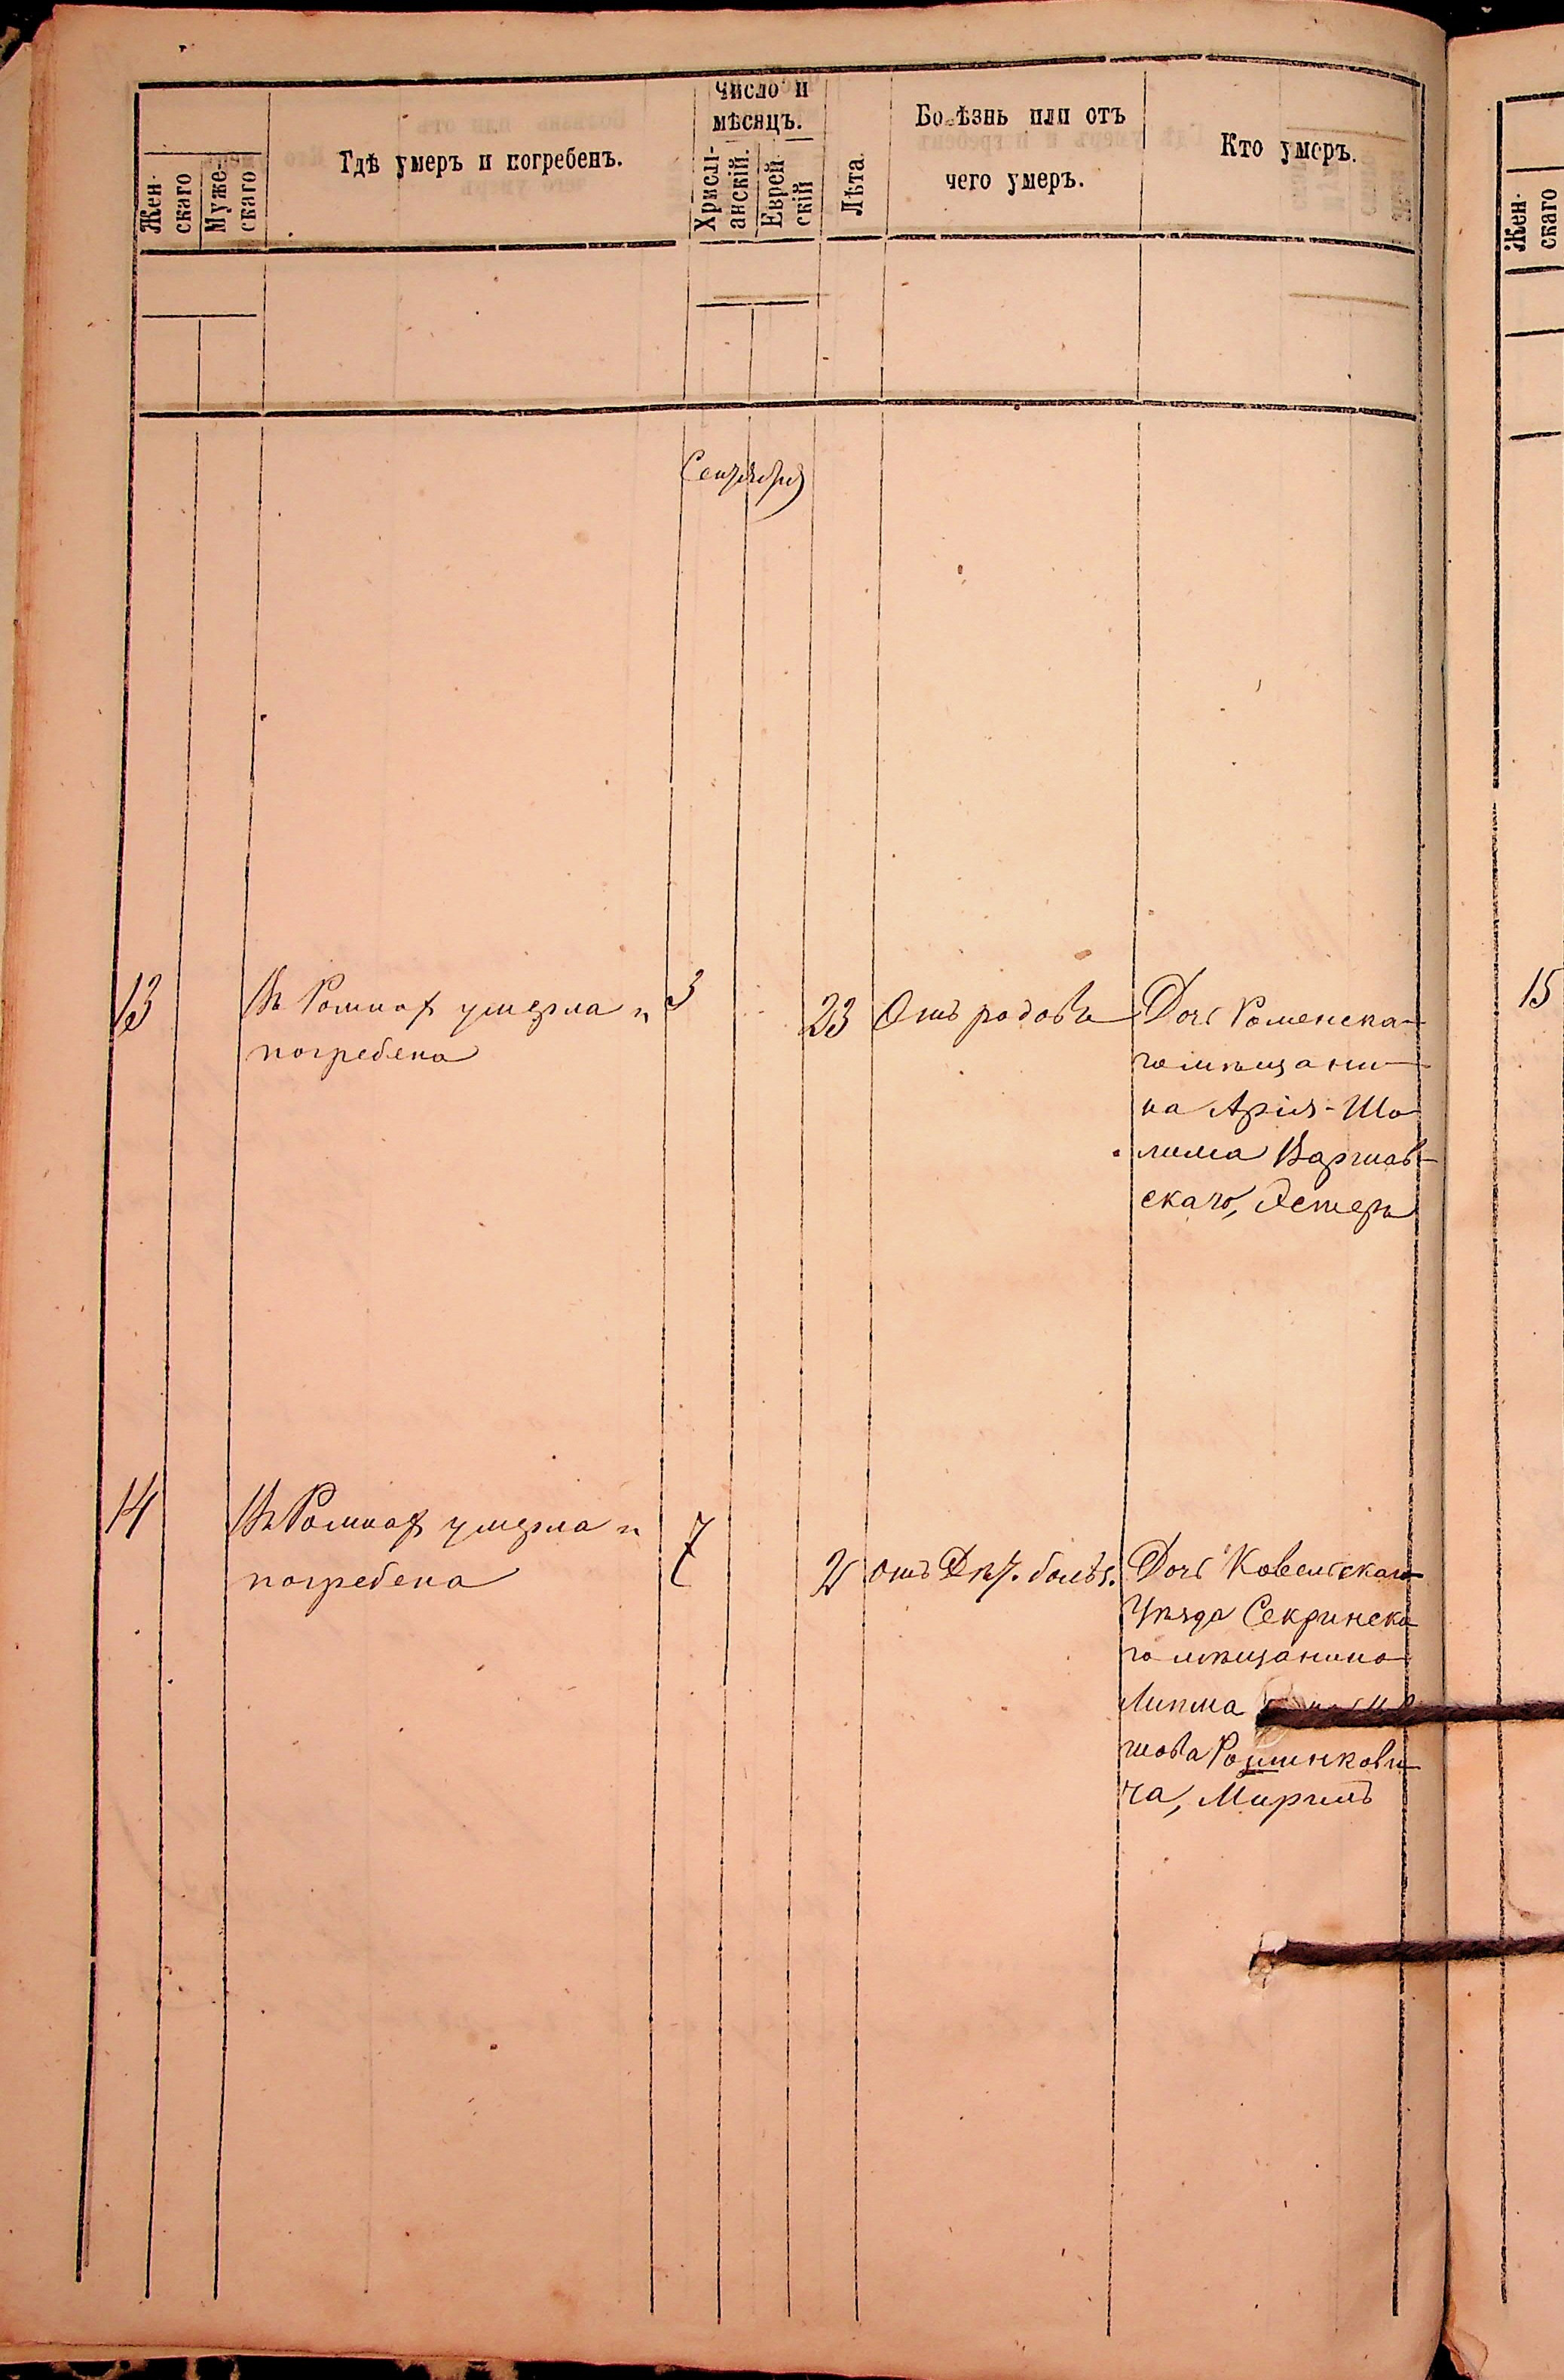 Жен-
скаго
Муже-
скаго
Гдѣ умеръ и погребенъ.
Число и
мѣсяцъ.
Христі-
анскій.
Еврей-
скій
Лѣта.
Болѣзнь или отъ
чего умеръ.
Кто умеръ.
Жен-
скаго
Сентября
13
Въ Ромнах умерла и
погребена
3
23
Отъ родовъ
Дочь Роменска-
го мѣщани-
на Арія-Шо
лима Варшав-
скаго, Эстеръ
15
14
Въ Ромнах умерла и
погребена
7
2
отъ Дѣт. болѣз.
Дочь Ковельскаго
Уѣзда Секринска
го мѣщанина
Липма
шова Рошинкови
ча, Миримъ